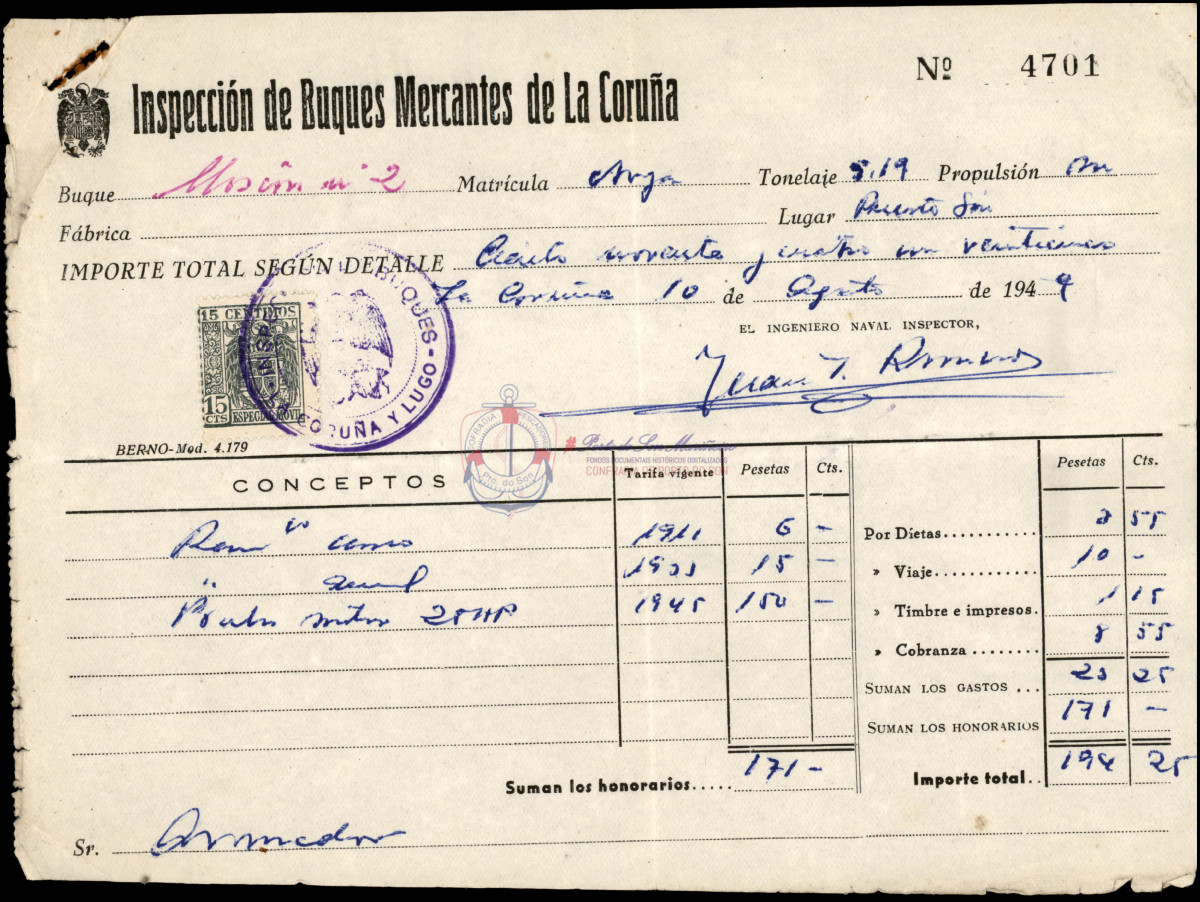 Nº 4701
Inspección de Buques Mercantes de La Coruña
Buque Mosión nº 2 Matrícula Noya Tonelaje 5.19 Propulsión
Fábrica Lugar Puerto Son
IMPORTE TOTAL SEGÚN DETALLE Ciento noventa y cuatro con veinticinco
La Coruña 10 de Agosto de 1949
EL INGENIERO NAVAL INSPECTOR,
Juan J. Romero
15 CENTIMOS
15 CTS ESPECIAL MOVIL
BUQUES - LA CORUÑA Y LUGO - INSPEC
BERNO-Mod. 4.179
COFRADIA PESCADORES
Pto. do Son
FONDOS DOCUMENTAIS HISTÓRICOS DIGITALIZADOS
CONFRARÍA DE PORTO DO SON
CONCEPTOS Tarifa vigente Pesetas Cts. Pesetas Cts.
casco 1911 6 —
" 1933 15 —
motor 25 HP 1945 150 —
Por Dietas 3 55
» Viaje 10 -
» Timbre e impresos. 1 15
» Cobranza 8 55
SUMAN LOS GASTOS 23 25
SUMAN LOS HONORARIOS 171 —
Suman los honorarios 171 -
Importe total 194 25
Sr. Armador